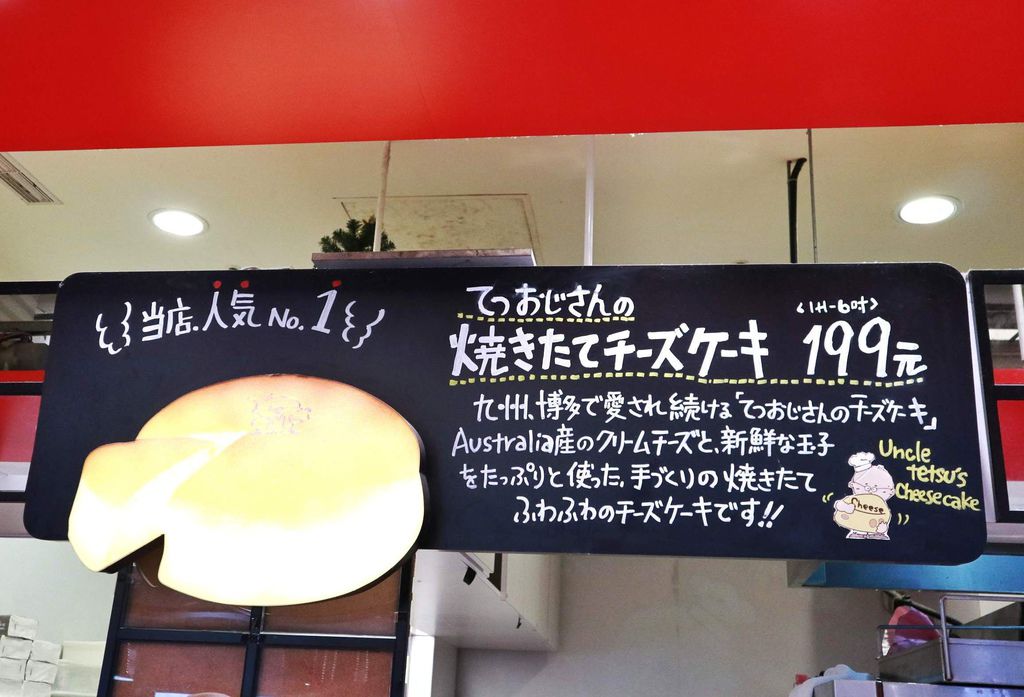 当店.人気 No.1
てつおじさんの
<1H-6吋>
焼きたてチーズケーキ 199元
九州、博多で愛され続ける「てつおじさんのチーズケーキ」
Australia産のクリームチーズと、新鮮な玉子
をたっぷりと使った、手づくりの焼きたて
ふわふわのチーズケーキです!!
Uncle
tetsu's
Cheese cake
Cheese